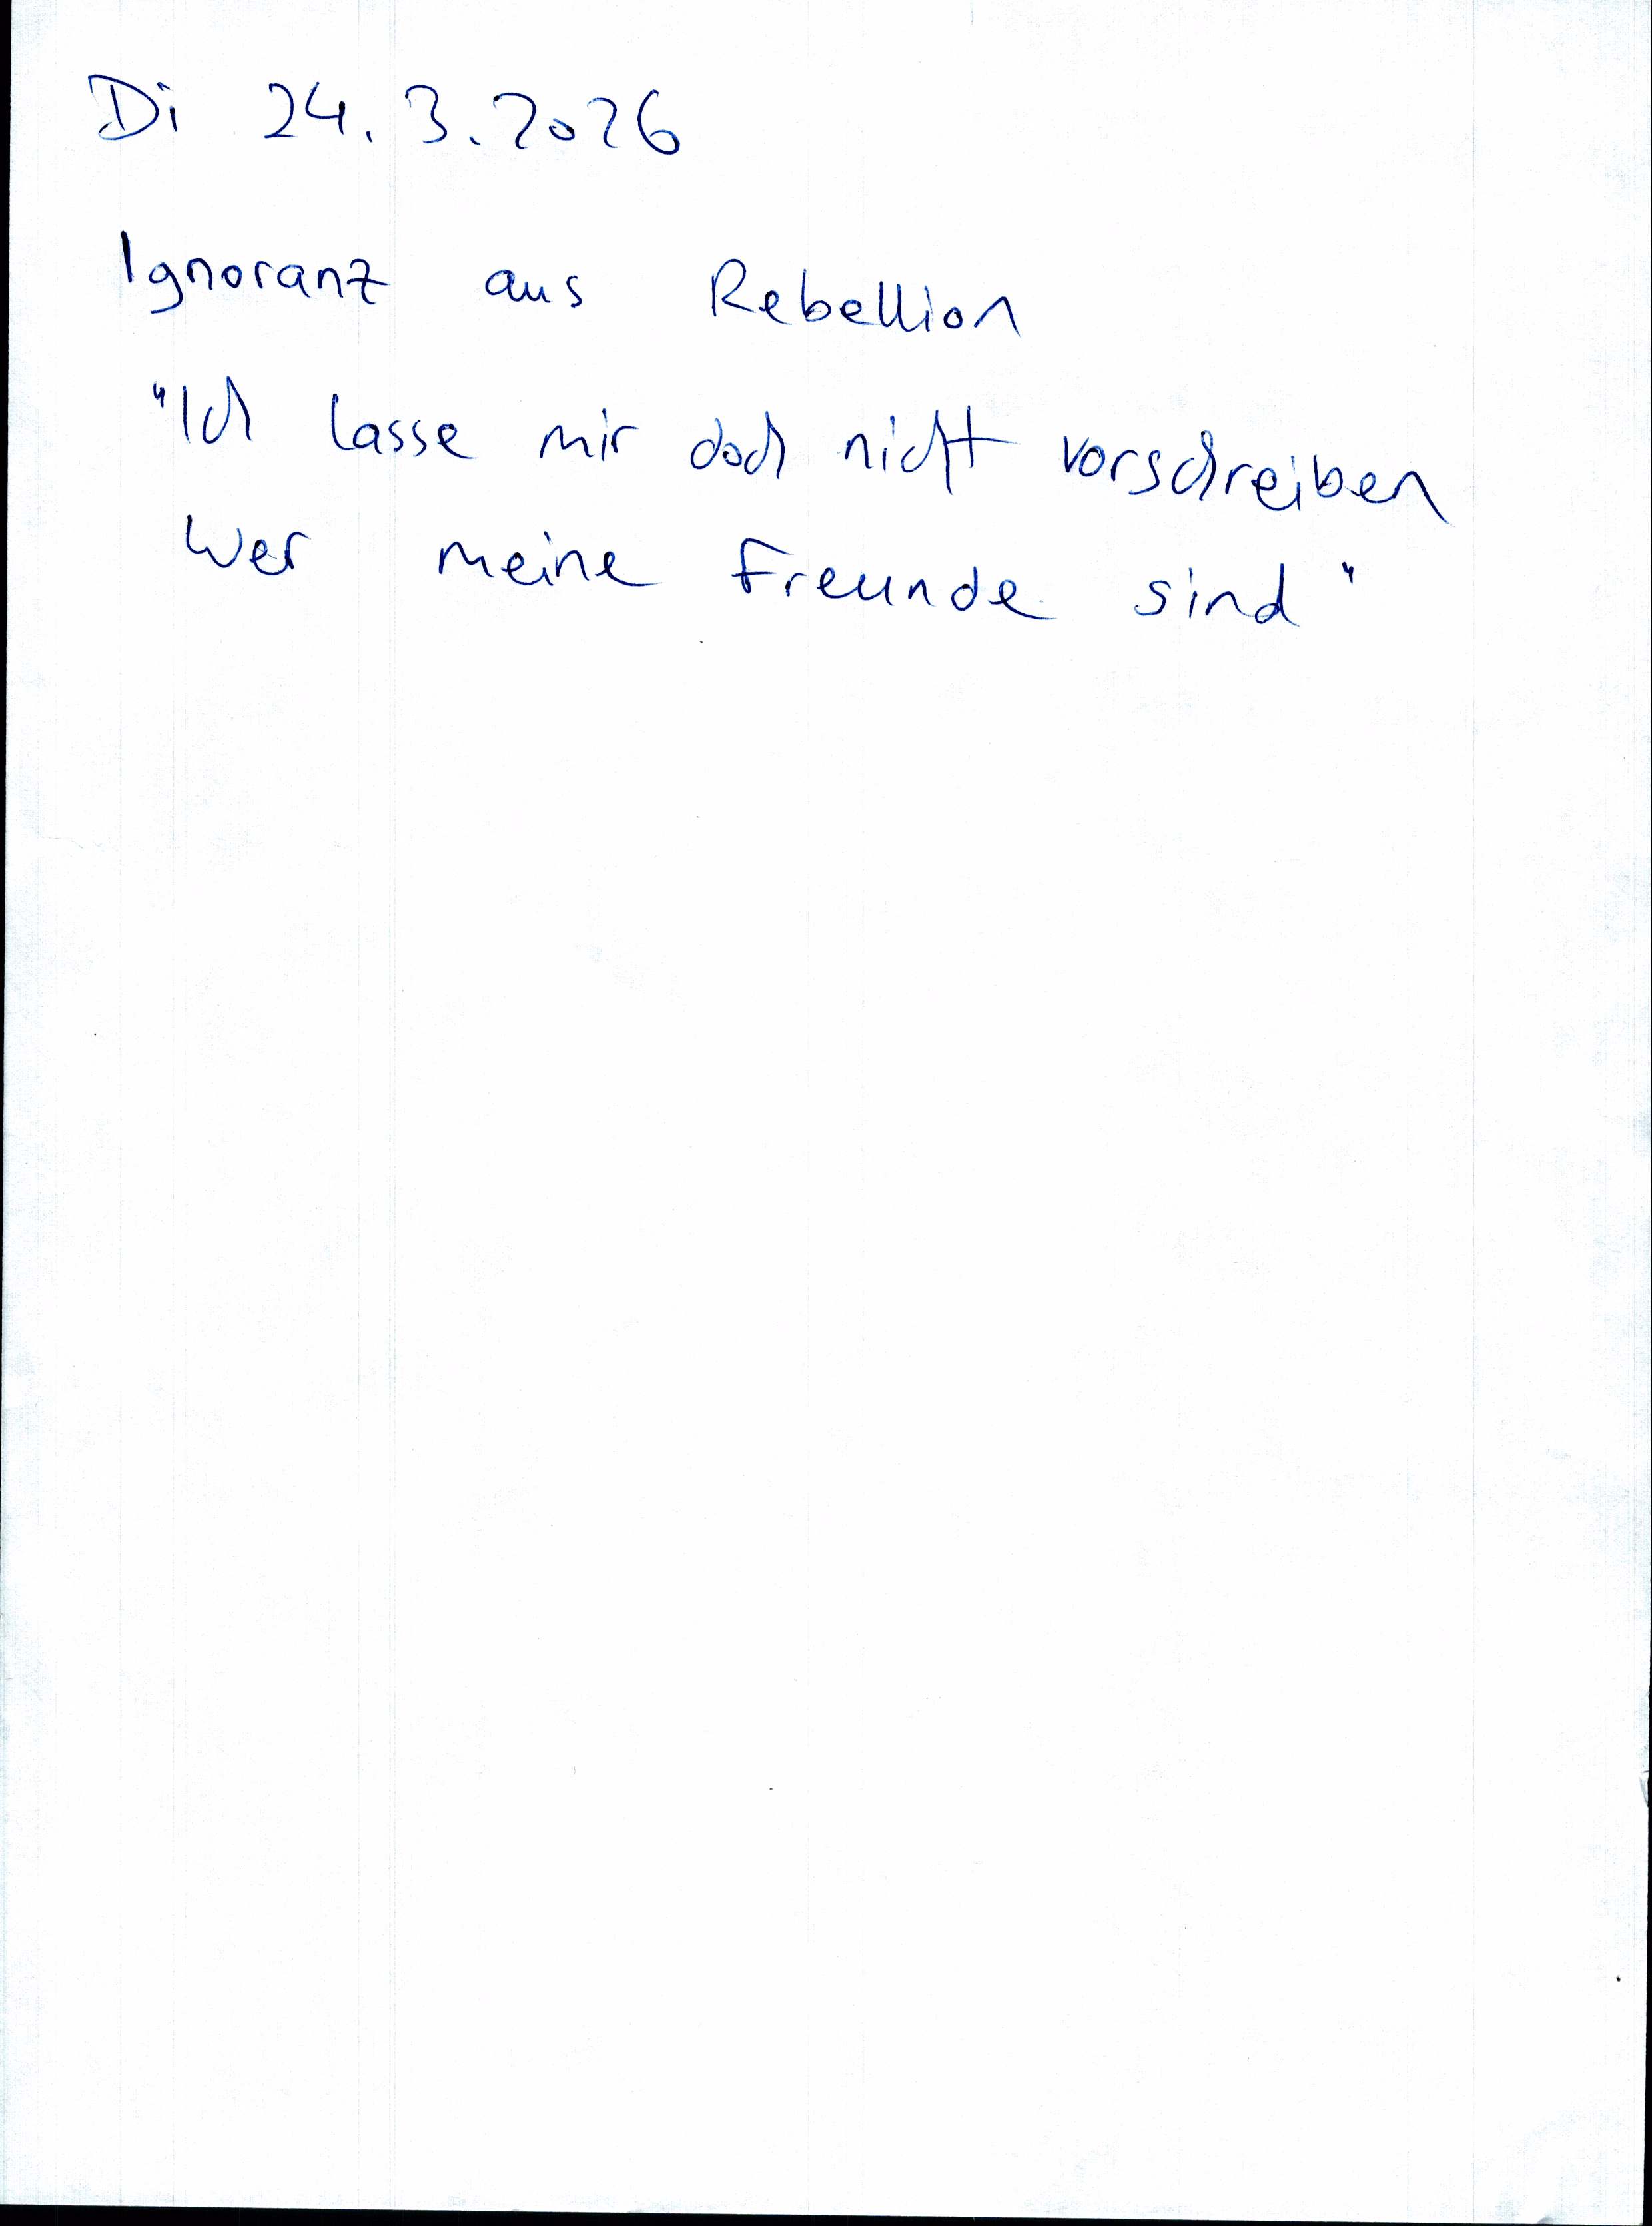 Di 24.3.2026
Ignoranz aus Rebellion
"Ich lasse mir doch nicht vorschreiben
wer meine Freunde sind"